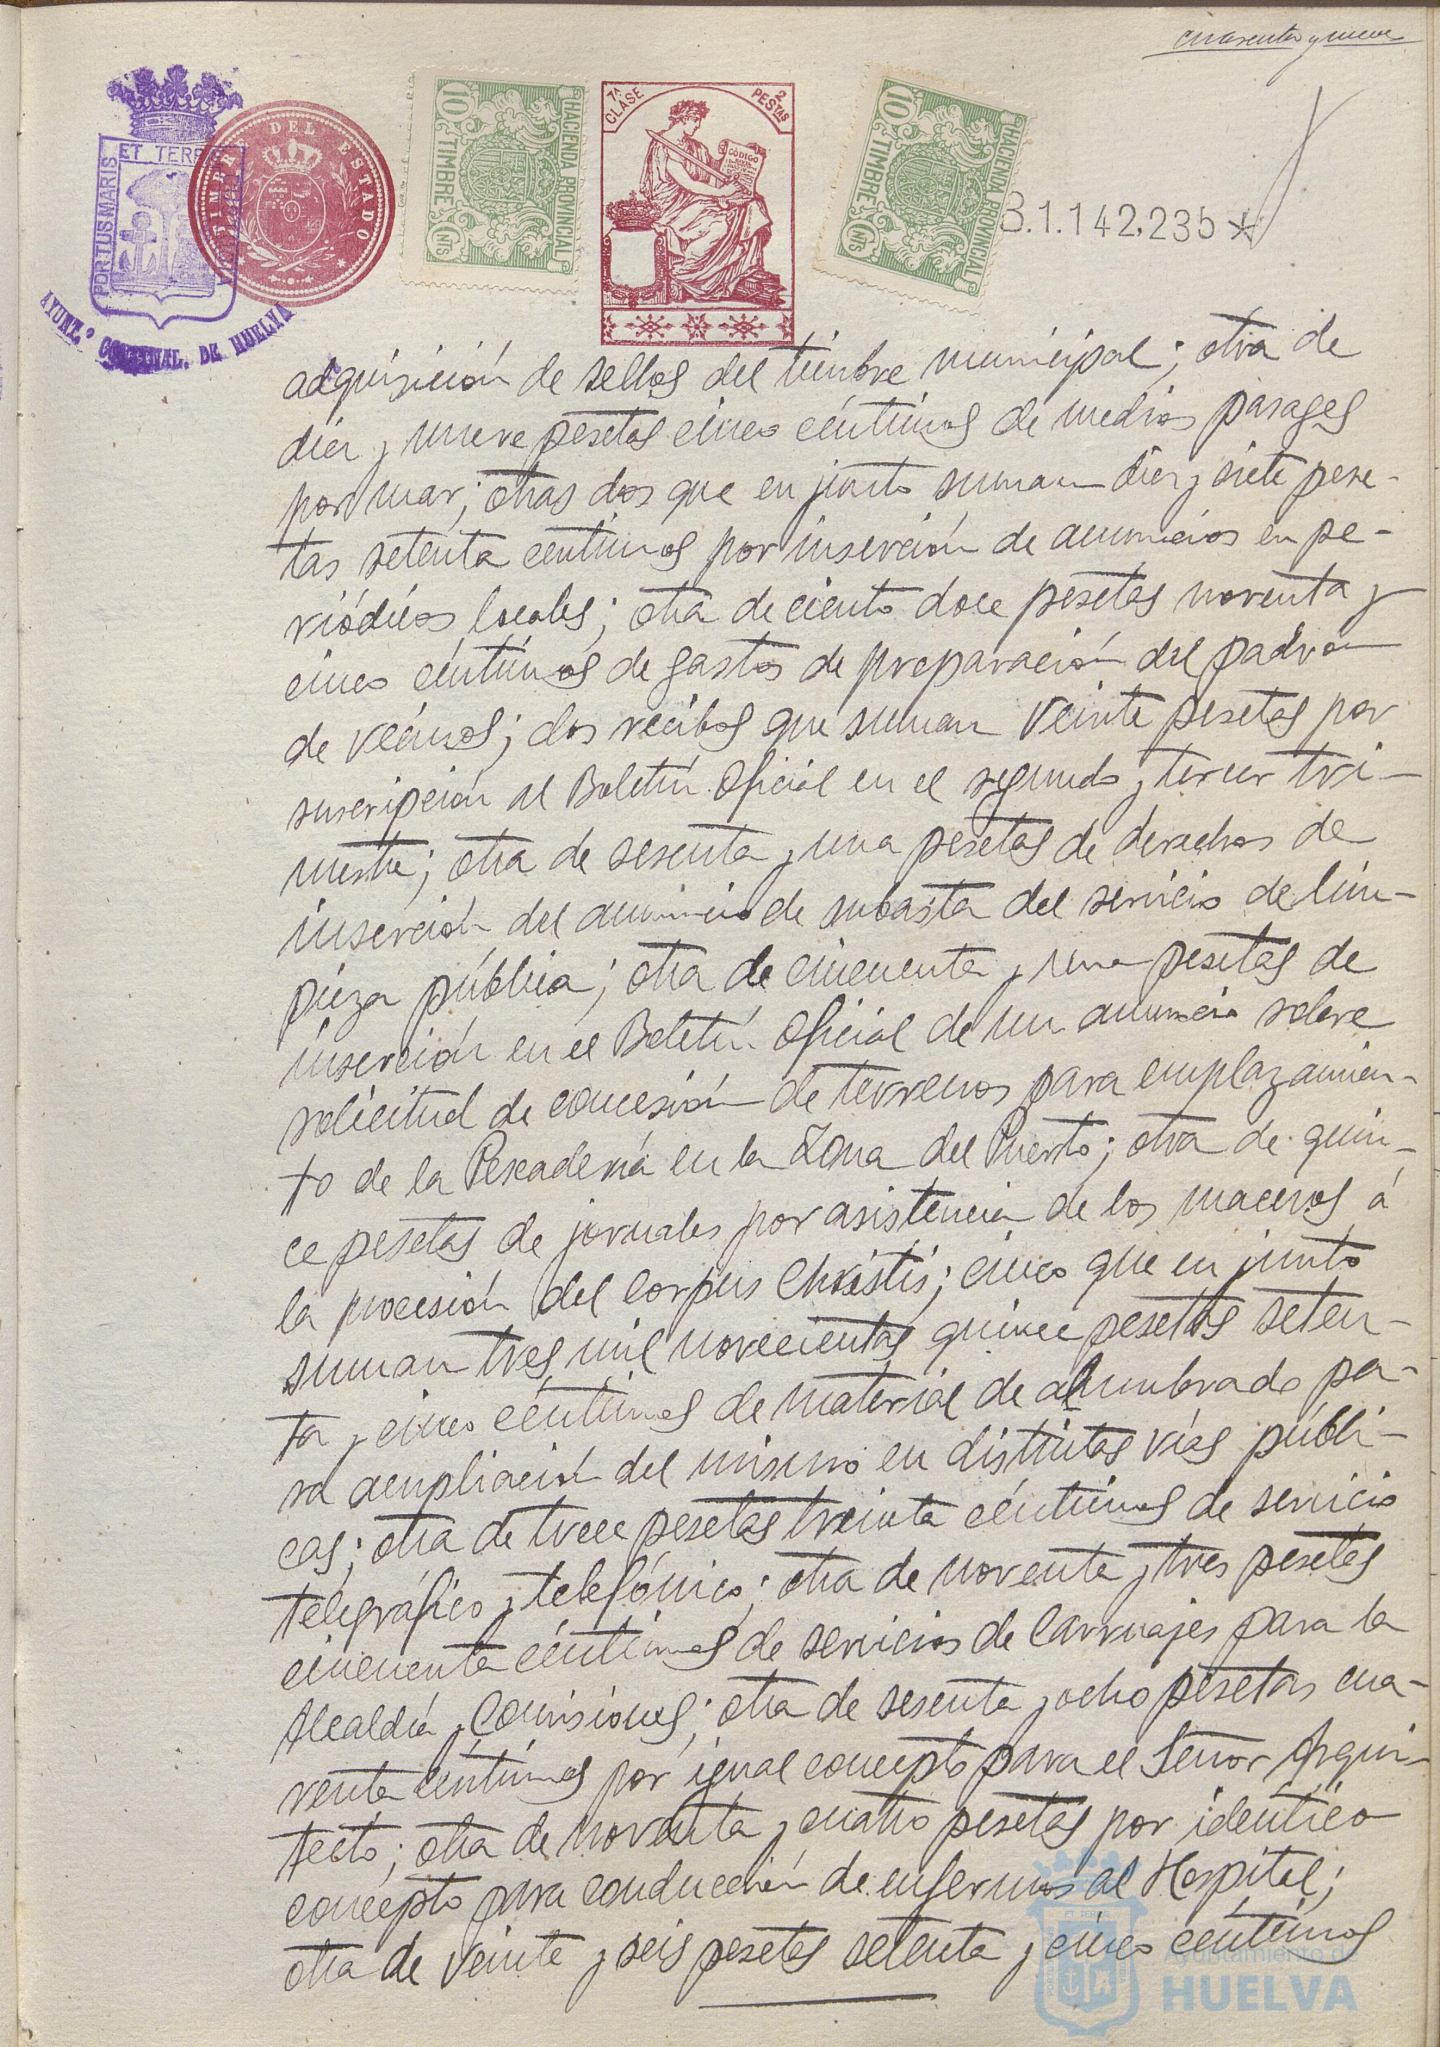 cuarenta y nueve
PORTUS MARIS ET TERRE
AYUNT.º DE HUELVA
TIMBRE DEL ESTADO
10 CNTS
TIMBRE
HACIENDA PROVINCIAL
7ª CLASE
2 PESTAS
CÓDIGO
10 CNTS
TIMBRE
HACIENDA PROVINCIAL
B.1.142.235*
adquisición de sellos del timbre municipal; otra de
diez y nueve pesetas cinco céntimos de medios pasages
por mar; otras dos que en junto suman diez y siete pese-
tas setenta céntimos por inserción de anuncios en pe-
riódicos locales; otra de ciento doce pesetas noventa y
cinco céntimos de gastos de preparación del padron
de vecinos; dos recibos que suman veinte pesetas por
suscripción al Boletín Oficial en el segundo y tercer tri-
mestre; otra de sesenta y una pesetas de derechos de
inserción del anuncio de subasta del servicio de lim-
pieza pública; otra de cincuenta y una pesetas de
inserción en el Boletín Oficial de un anuncio sobre
solicitud de concesión de terrenos para emplazamien-
to de la Pescadería en la Zona del Puerto; otra de quin-
ce pesetas de jornales por asistencia de los maceros á
la procesión del Corpus Christis; cinco que en junto
suman tres mil novecientas quince pesetas seten-
ta y cinco céntimos de material de alumbrado pa-
ra ampliación del mismo en distintas vías públi-
cas; otra de trece pesetas treinta céntimos de servicio
telegráfico y telefónico; otra de noventa y tres pesetas
cincuenta céntimos de servicios de carruajes para la
Alcaldía y Comisiones; otra de sesenta y ocho pesetas cua-
renta céntimos por igual concepto para el Señor Arqui-
tecto; otra de noventa y cuatro pesetas por identico
concepto para conducción de enfermos al Hospital;
otra de veinte y seis pesetas setenta y cinco céntimos
Ayuntamiento de
HUELVA